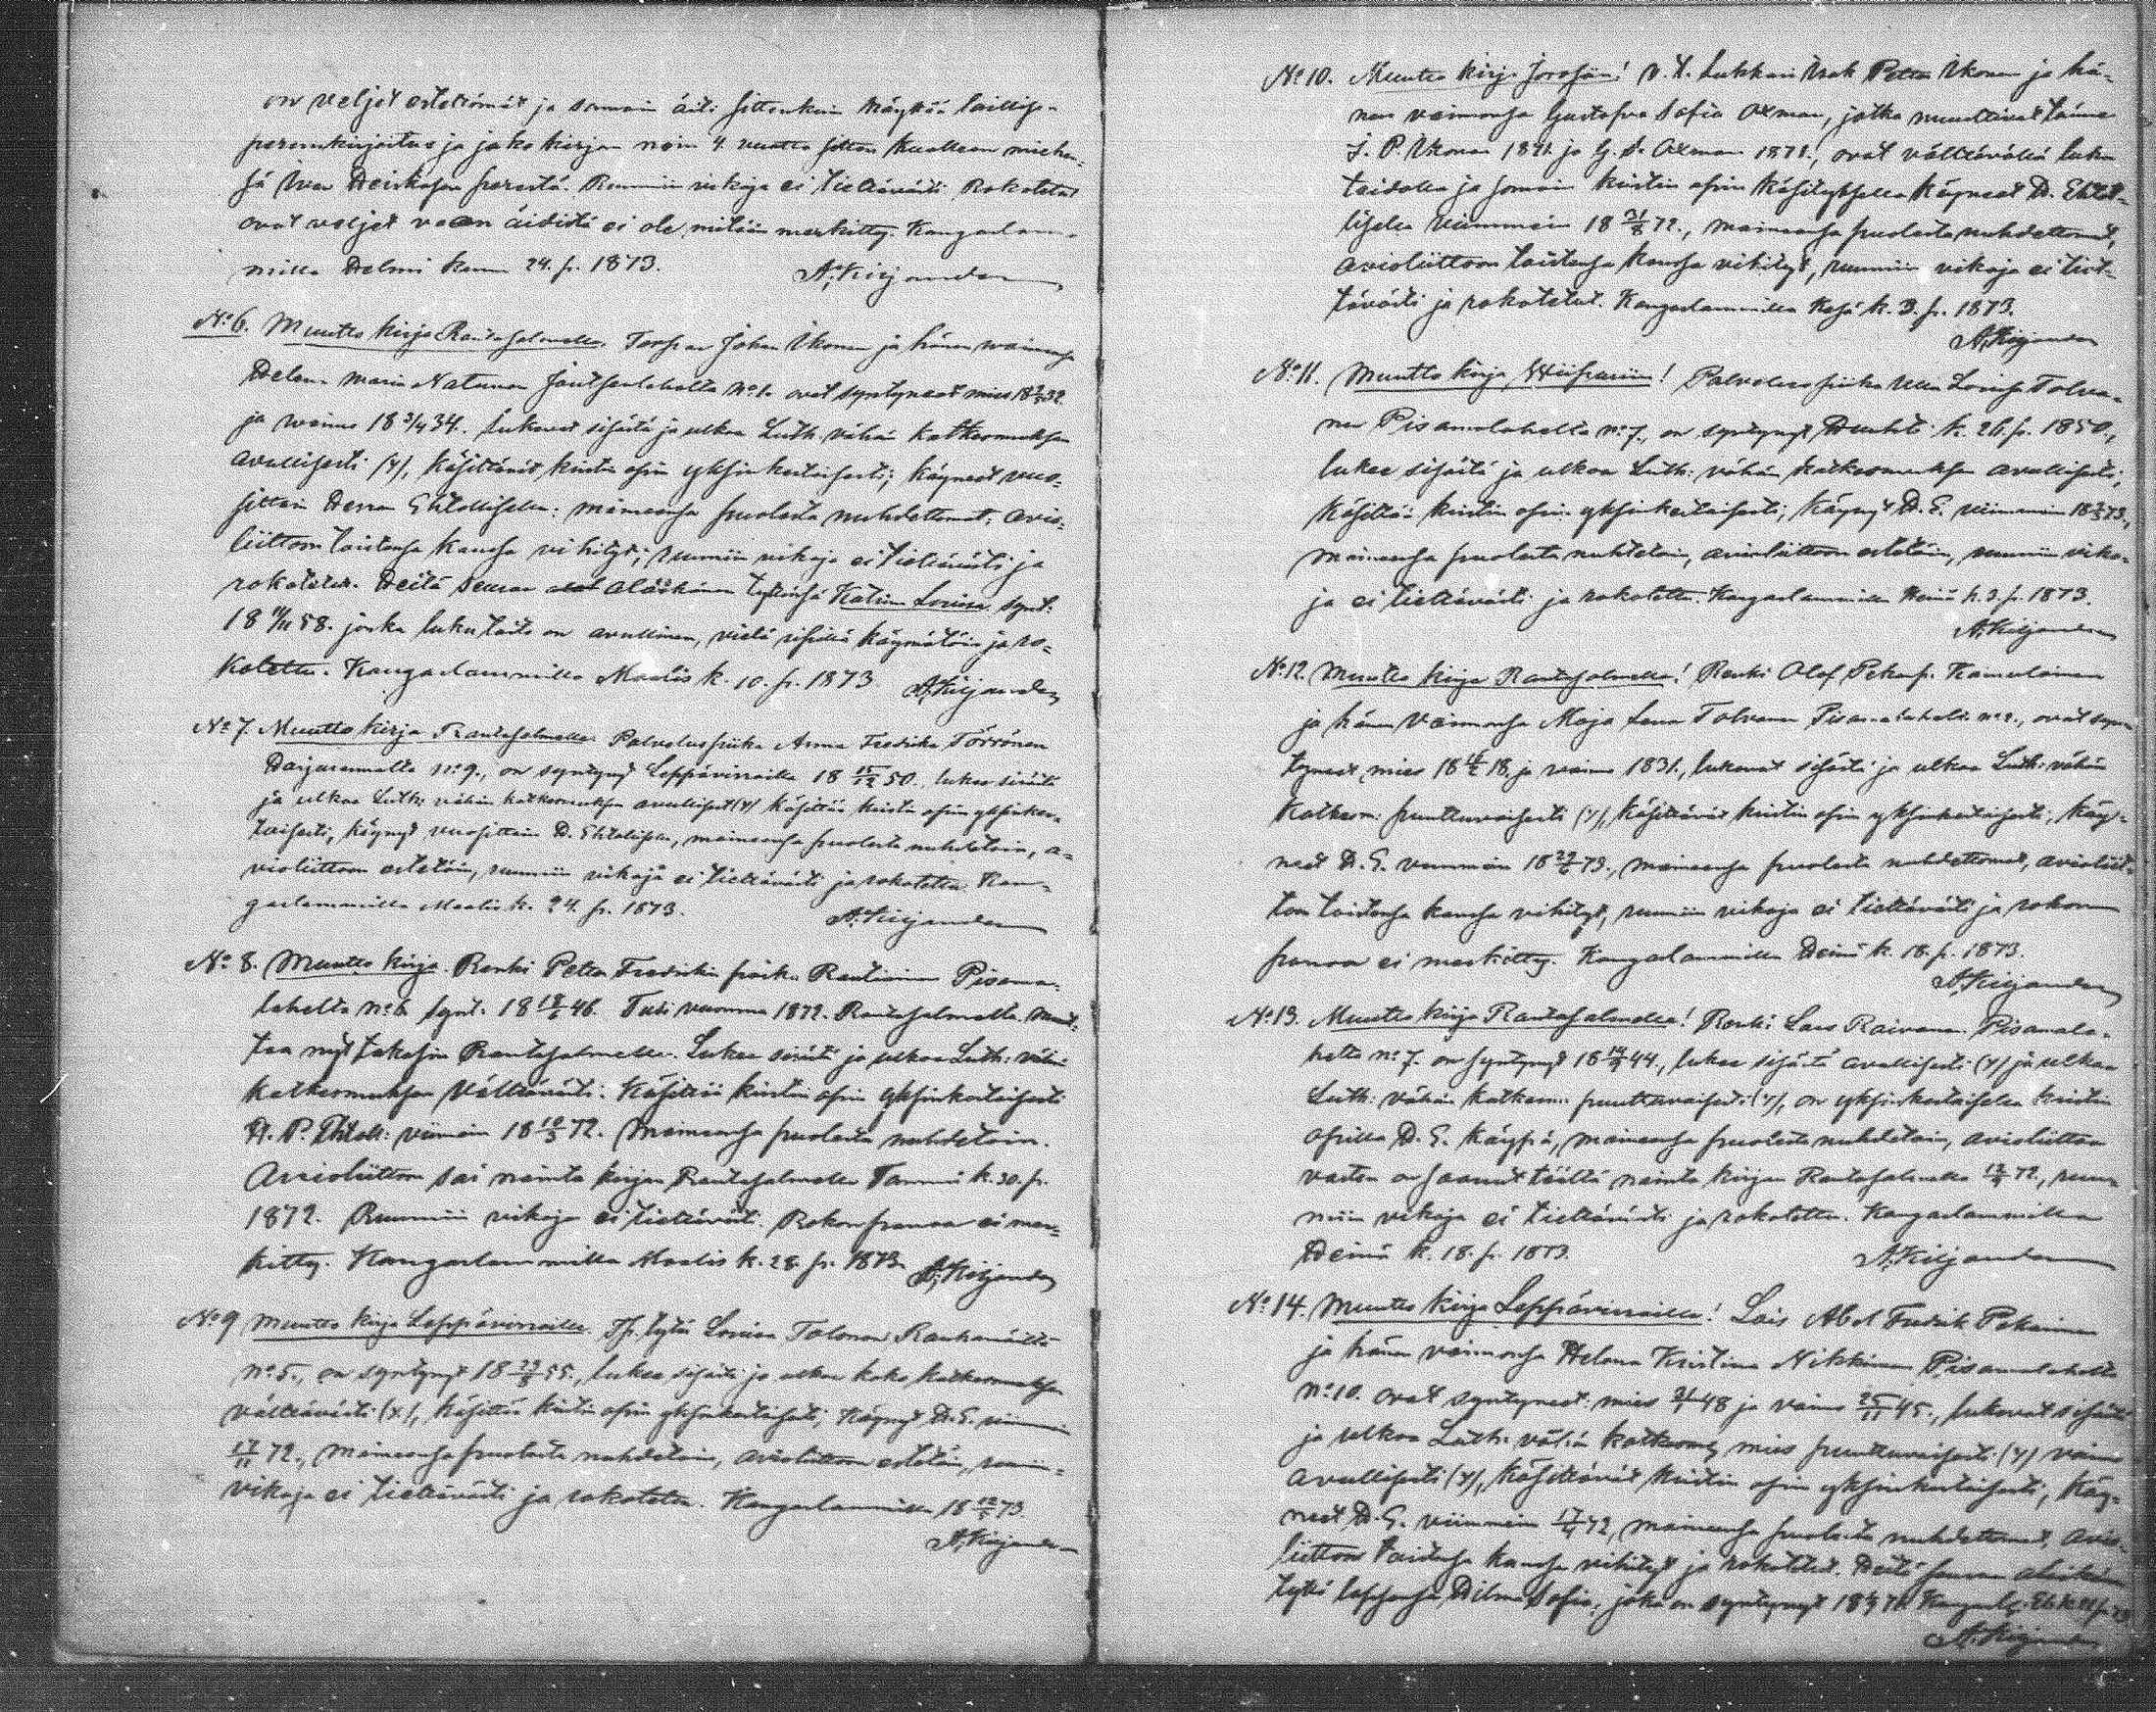 on veljet estettömät ja samoin äiti sittenkuin käyttää laillise
perunkirjoitus ja jako kirjan noin 4 vuotta sitten kuolleen miehen-
sä perästä. Ruumiin vikoja ei tiettävästi. Rokotetut
ovat veljet vaan äidistä ei ole mitään merkitty. Kangaslam-
milla Helmi kuun 24. p. 1873.
A. Kiljander
No 6. Muutto kirja Rantasalmelle. Torppar Johan Ikonen ja hänen waimonsa
Helena Maria Natunen no 1. ovat syntyneet mies 18 32.
ja waimo 18 3/4 34. Lukevat sisältä ja ulkoa Luth. vähän katkesmuksen
avullisesti (y), käsittävät kristin opin yksinkertaisesti; käyneet vuo-
sittain Herran Ehtollisella: maineensa puolesta nuhdettomat; avio-
liittoon toistensa kanssa vihityt; ruumiin vikoja ei tiettävästi ja
rokotetut. Heitä seuraa alaikäinen tyttärensä Katrin Lovisa synt.
18 58. jonka lukutaito on avullinen, vielä ripillä käymätöin ja ro-
kotettu. Kangaslammilla Maalis k. 10. p. 1873 A. Kiljander
No 7. Muutto kirja Rantasalmelle. Palveluspiika Anna Fredrika Törrönen
Harjurannalta no 9., on syntynyt Leppävirroilla 18 50. lukee sisältä
ja ulkoa Luth. vähän katkesmuksen avullisesti (y) käsittää kristin opin yksinker-
taisesti, käynyt vuosittain H. Ehtollisella, maineensa puolesta nuhdetoin, a-
violiittoon estetöin, ruumiin vikoja ei tiettävästi ja rokotettu. Kan-
gaslammilla Maalis k. 24. p. 1873.
A. Kiljander
No 8. Muutto kirja. Renki Petter Fredrikin poik. Rautiainen Pisama-
lahelta no 6. synt. 18 46. Tuli vuonna 1872. Rantasalmelta. Muut-
taa nyt takasin Rantasalmelle. Lukee sisältä ja ulkoa Luth. vähän
katkesmuksen välttävästi: Käsittää kristin opin yksinkertaisesti
H. P. Ehtoll: viimein 18 72. Maineensa puolesta nuhdetoin.
Avioliittoon sai nainta kirjan Rantasalmelle Tammi k. 30. p.
1872. Ruumiin vikoja ei tiettävästi. Rokon panoa ei mer-
kitty. Kangaslammilla Maalis k. 28. p. 1873. A. Kiljander
No 9 Muutto kirja Leppävirroille. tytö Lovisa Tolonen
no 5., on syntynyt 18 55., lukee sisältä ja ulkoa koko katkesmuksen
välttävästi (x), käsittää kristin opin yksinkertaisesti, käynyt H. E. viimein
17/11 72., maineensa puolesta nuhdetoin, avioliittoon estetöin, ruumiin
vikoja ei tiettävästi ja rokotettu. Kangaslammilla 18 73.
A. Kiljander
No 10. Muutto kirja V. t. Lukkari Isak Petter Ikonen ja hä-
nen vaimonsa Gustafva Sofia Oxman, jotka muuttivat tänne
I. P. Ikonen 1871 ja G. S. Oxman 1871., ovat välttävällä luku
taidolla ja somain kristin opin käsityksellä käyneet H. Ehtol-
lisella viimmein 18 72., maineensa puolesta nuhdettomat,
avioliittoon toistensa kanssa vihityt, ruumiin vikoja ei tiet-
tävästi ja rokotetut. Kangaslammilla Kesä k. 3. p. 1873.
A. Kiljander
No 11. Muutto kirja Wiipuriin! Palvelus piika Ulla Lovisa Tolva-
nen Pisamalahelta no 7., on syntynyt Huhti k. 26. p. 1850.,
lukee sisältä ja ulkoa Luth: vähän katkesmuksen avullisesti;
Käsittää kristin opin yksinkertaisesti; käynyt H. E. viimmein 18 73.,
maineensa puolesta nuhtetoin, avioliittoon estetöin, ruumiin viko-
ja ei tiettävästi ja rokotettu. Kangaslammilla Heinä k. 3. p. 1873.
A. Kiljander
No 12. Muutto kirja Rantasalmelle! Renki Olof Pekanp. Kamulainen
ja hänen vaimonsa Maja Lena Tolvanen Pisamalahelt. no 2., ovat syn-
tyneet, mies 18 18, ja vaimo 1831., lukevat sisältä ja ulkoa Luth: vähän
katkesm: puuttuvaisesti (y), käsittävät kristin opin yksinkertaisesti, käy-
neet H. E. viimmein 18 73., maineensa puolesta nuhdettomat, avioliit-
toon toistensa kanssa vihityt, ruumiin vikoja ei tiettävästi ja rokon
panoa ei merkitty. Kangaslammilla Heinä k. 18. p. 1873.
A. Kiljander
No 13. Muutto kirja Rantasalmelle! Renki Lars Raivanen Pisamala-
helta no 7. on syntynyt 18 44., lukee sisältä avullisesti (y) ja ulkoa
Luth: vähän katkesm: puuttuvaisesti (y), on yksinkertaisella kristin
opilla H. E. käypä, maineensa puolesta nuhdetoin, avioliittoa
varten on saanut täältä nainta kirjan Rantasalmelle 72., ruu-
miin vikoja ei tiettävästi ja rokotettu. Kangaslammilla
Heinä k. 18. p. 1873.
A. Kiljander
No 14. Muutto kirja Leppävirroille! Lois Abel Fredrik Pekarinen
ja hänen vaimonsa Helena Kristina Nikkinen Pisamalahelta
no 10. ovat syntyneet: mies 48 ja vaimo 25/11 45., lukevat sisältä
ja ulkoa Luth. vähän katkesm. mies puuttuvaisesti (y) vaimo
avullisesti (y), käsittävät kristin opin yksinkertaisesti, käy-
neet H. E. viimmein 72, maineensa puolesta nuhdettomat, avio-
liittoon toistensa kanssa vihityt ja rokotetut. Heitä seuraa alaikäinen
tyttö lapsensa, Hilma Sofia, joka on syntynyt 18
A. Kiljander